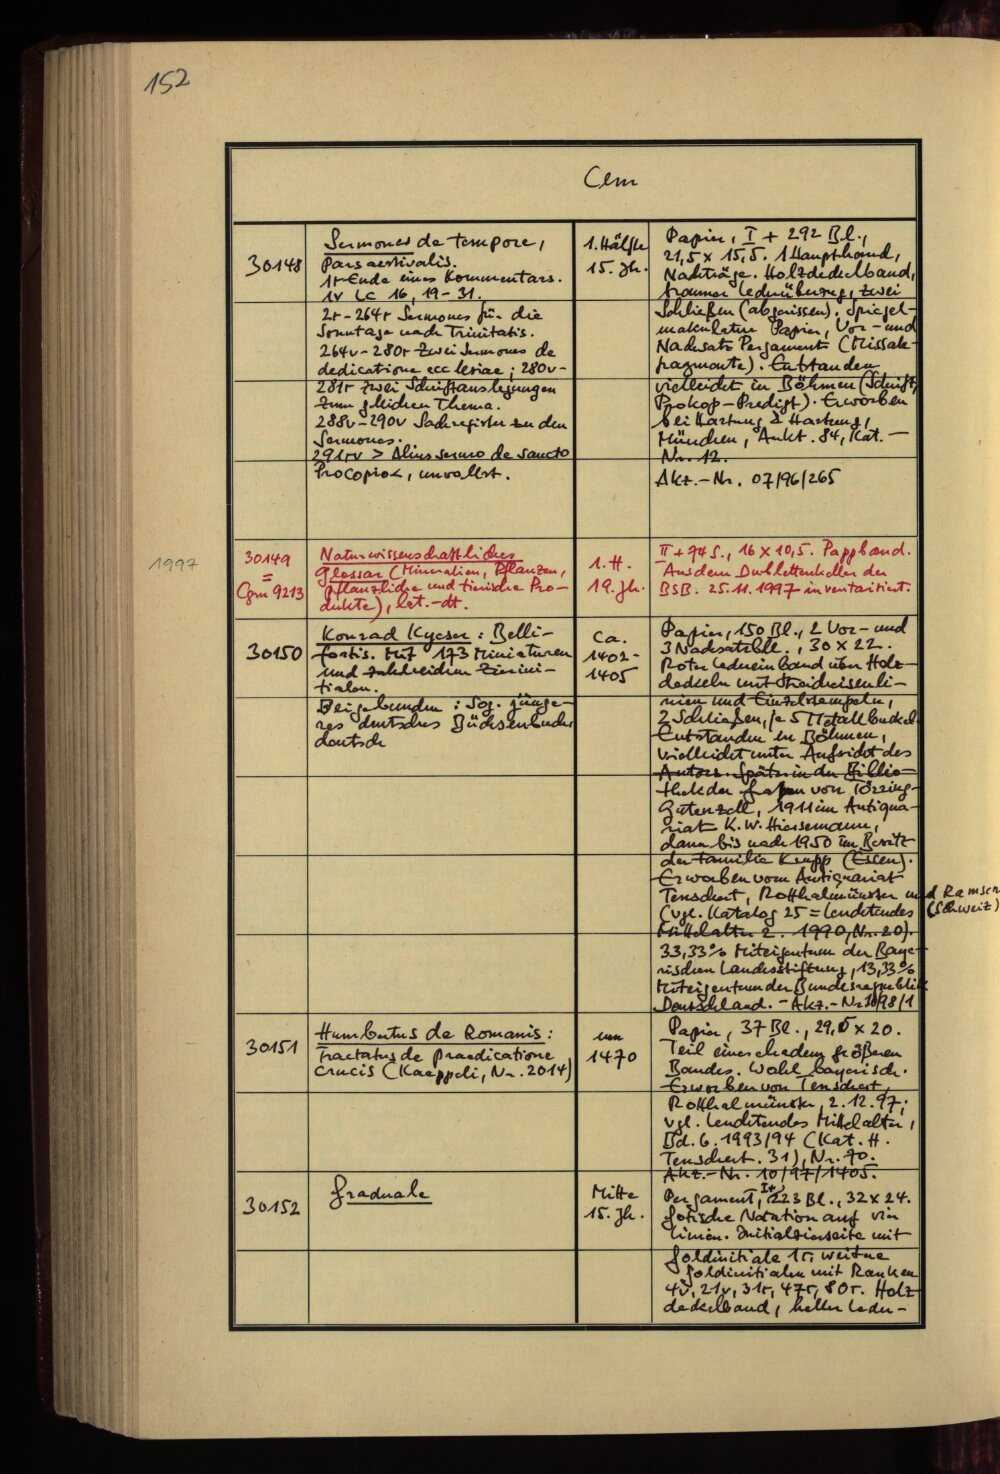 152
Clm
30148
Sermones de tempore,
Pars aestivalis.
1r Ende eines Kommentars.
1v Lc 16, 19-31.
2r-264r Sermones für die
Sonntage nach Trinitatis.
264v-280r Zwei Sermones de
dedicatione ecclesiae; 280v-
281r zwei Schriftauslegungen
zum gleichen Thema.
288v-290v Sachregister zu den
Sermones.
291rv > Alius sermo de sancto
Procopio<, unvollst.
1. Hälfte
15. Jh.
Papier, I + 292 Bl.,
21,5 x 15,5. 1 Haupthand,
Nachträge. Holzdeckelband,
brauner Lederüberzug, zwei
Schließen (abgerissen). Spiegel-
makulatur Papier, Vor- und
Nachsatz Pergament (Missale-
fragmente). Entstanden
vielleicht in Böhmen (Schrift,
Prokop-Predigt). Erworben
bei Hartung & Hartung,
München, Aukt. 84, Kat.-
Nr. 12.
Akz.-Nr. 07/96/265
1997
30149
=
Cgm 9213
Naturwissenschaftliches
Glossar (Mineralien, Pflanzen,
pflanzliche und tierische Pro-
dukte), lat.-dt.
1. H.
19. Jh.
II + 74 S., 16 x 10,5. Pappband.
Aus dem Dublettenkeller der
BSB. 25.11.1997 inventarisiert.
30150
Konrad Kyeser: Belli-
fortis. Mit 173 Miniaturen
und zahlreichen Zierini-
tialen.
Beigebunden: Sog. jünge-
res deutsches Büchsenbuch
deutsch
ca.
1402-
1405
Papier, 150 Bl., 2 Vor- und
3 Nachsatzbll., 30 x 22.
Roter Ledereinband über Holz-
deckeln mit Streicheisenli-
nien und Einzelstempeln,
2 Schließen, je 5 Metallbuckel.
Entstanden in Böhmen,
vielleicht unter Aufsicht des
Autors. Später in der Biblio-
thek der Grafen von Törring-
Gutenzell, 1911 im Antiqua-
riat K. W. Hiersemann,
dann bis nach 1950 im Besitz
der Familie Krupp (Essen).
Erworben vom Antiquariat
Tenschert, Rotthalmünster und Ramsen
(vgl. Katalog 25 = Leuchtendes (Schweiz)
Mittelalter 2. 1990, Nr. 20).
33,33% Miteigentum der Baye-
rischen Landesstiftung, 13,33%
Miteigentum der Bundesrepublik
Deutschland. - Akz.-Nr. 10/98/1
30151
Humbertus de Romanis:
Tractatus de praedicatione
crucis (Kaeppeli, Nr. 2014)
um
1470
Papier, 37 Bl., 29,5 x 20.
Teil eines ehedem größeren
Bandes. Wohl bayerisch.
Erworben von Tenschert,
Rotthalmünster, 2.12.97;
vgl. Leuchtendes Mittelalter,
Bd. 6. 1993/94 (Kat. H.
Tenschert. 31), Nr. 70.
Akz.-Nr. 10/97/1405.
30152
Graduale
Mitte
15. Jh.
Pergament, I+ 223 Bl., 32 x 24.
Gotische Notation auf vier
Linien. Initialzierseite mit
Goldinitiale 1r, weitere
Goldinitialen mit Ranken
4v, 21v, 31r, 47r, 80r. Holz-
deckelband, heller Leder-